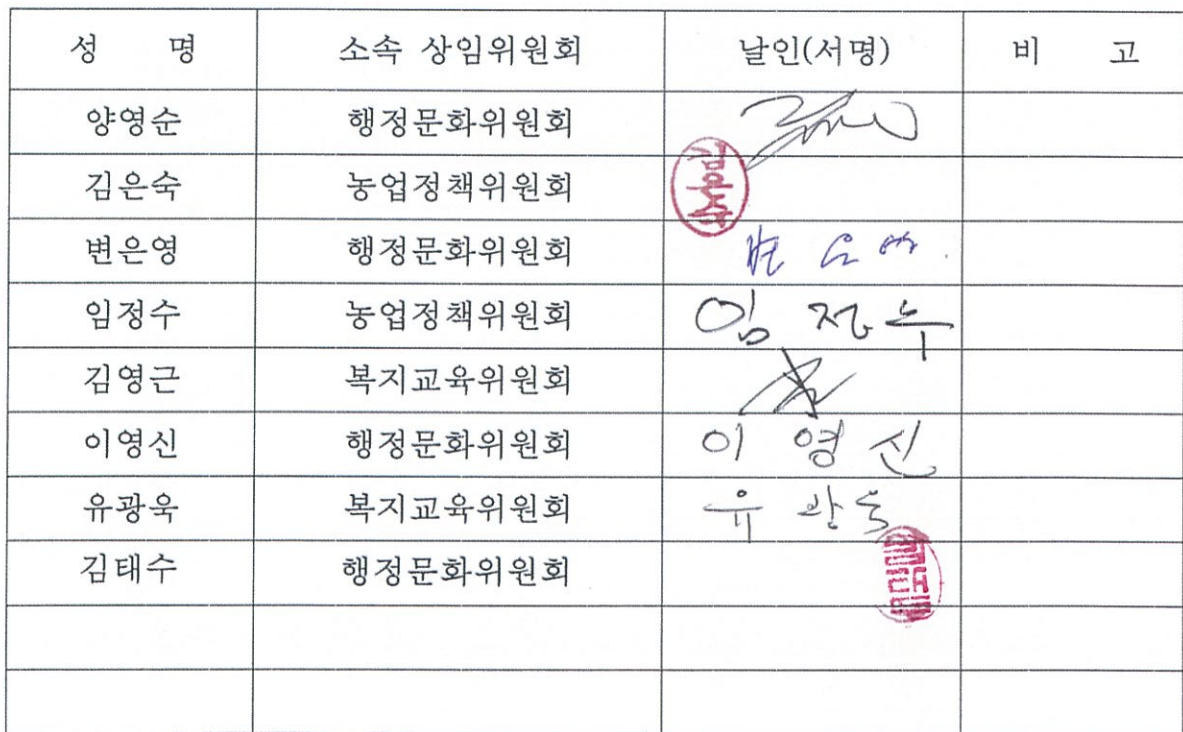 성 명 소속 상임위원회 날인(서명) 비 고
양영순 행정문화위원회
김은숙 농업정책위원회 김은숙
변은영 행정문화위원회
임정수 농업정책위원회 임정수
김영근 복지교육위원회
이영신 행정문화위원회 이영신
유광욱 복지교육위원회 유광욱
김태수 행정문화위원회